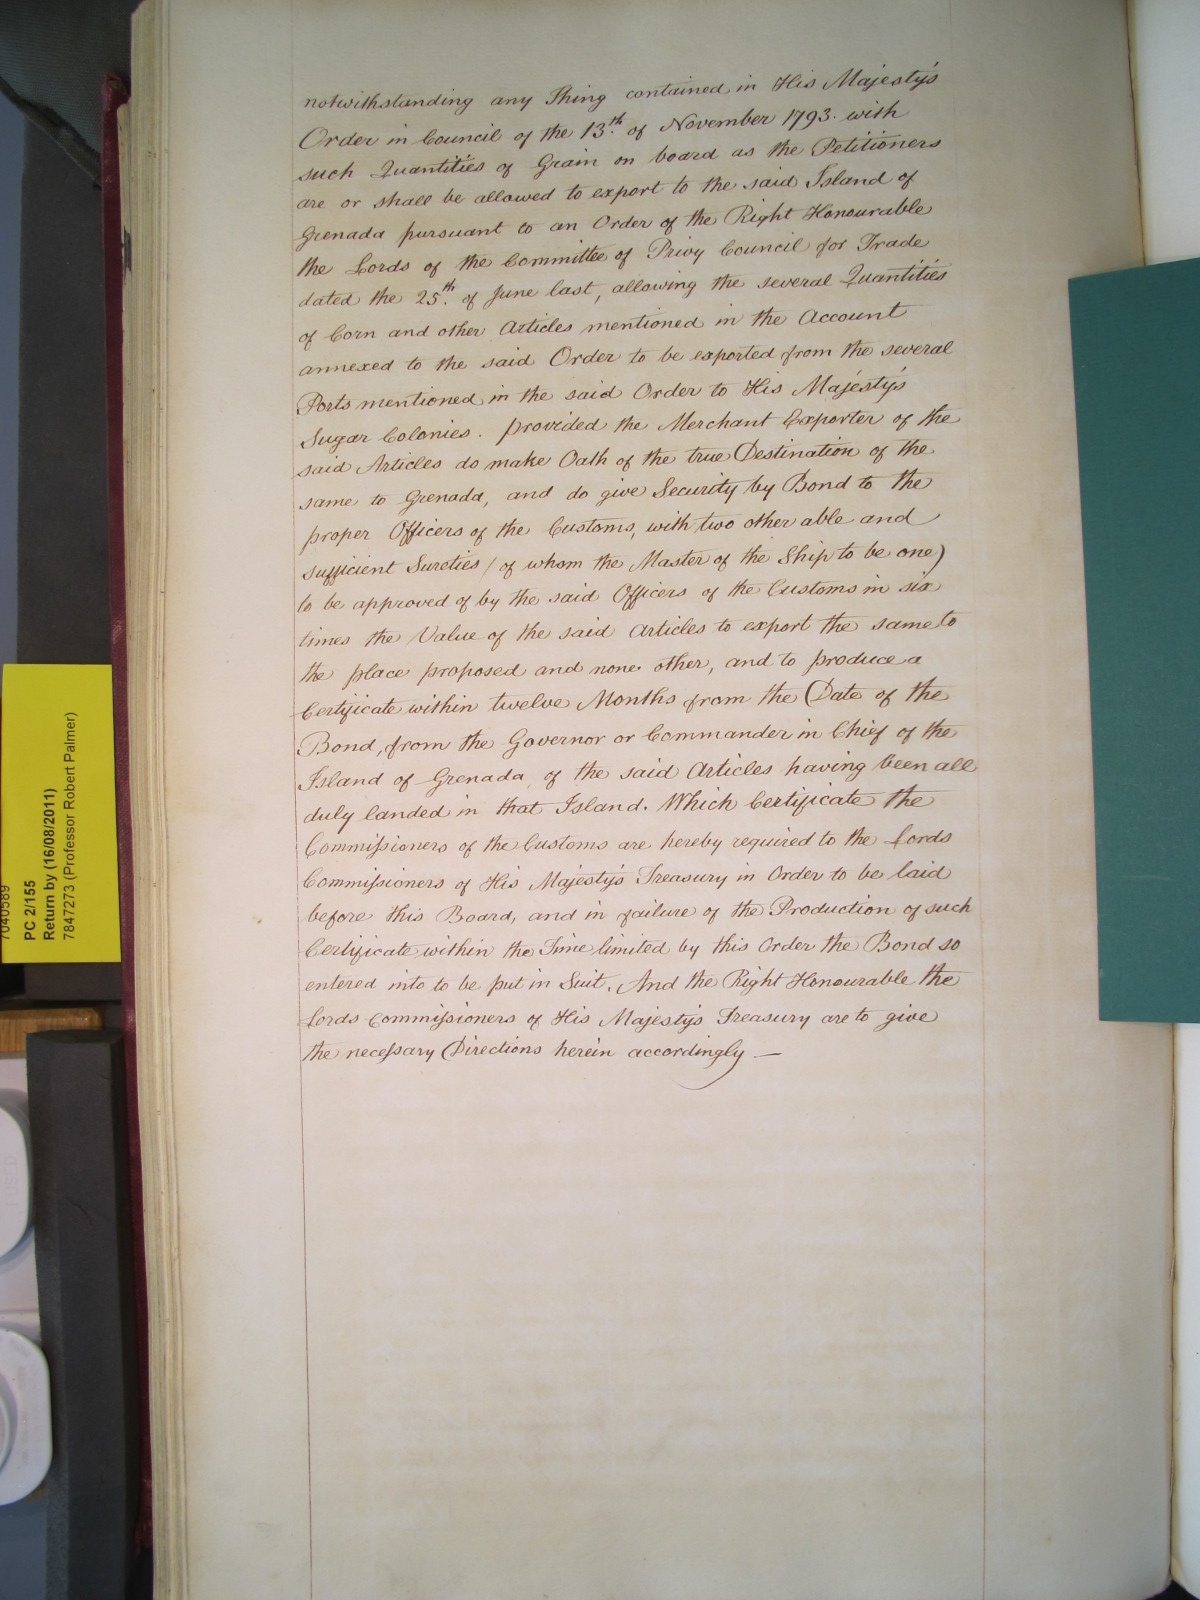 notwithstanding any Thing contained in His Majesty's
Order in Council of the 13th. of November 1793. with
such Quantities of Grain on board as the Petitioners
are or shall be allowed to export to the said Island of
Grenada pursuant to an Order of the Right Honourable
the Lords of the Committee of Privy Council for Trade
dated the 25th. of June last, allowing the several Quantities
of Corn and other Articles mentioned in the Account
annexed to the said Order to be exported from the several
Ports mentioned in the said Order to His Majesty's
Sugar Colonies. provided the Merchant Exporter of the
said Articles do make Oath of the true Destination of the
same to Grenada, and do give Security by Bond to the
proper Officers of the Customs, with two other able and
sufficient Sureties (of whom the Master of the Ship to be one)
to be approved of by the said Officers of the Customs in six
times the Value of the said Articles to export the same to
the place proposed and none other, and to produce a
Certificate within twelve Months from the Date of the
Bond, from the Governor or Commander in Chief of the
Island of Grenada of the said Articles having been all
duly landed in that Island. Which Certificate the
Commiſsioners of the Customs are hereby required to the Lords
Commiſsioners of His Majesty's Treasury in Order to be laid
before this Board, and in failure of the Production of such
Certificate within the Time limited by this Order the Bond so
entered into to be put in Suit. And the Right Honourable the
Lords Commiſsioners of His Majesty's Treasury are to give
the neceſsary Directions herein accordingly —
7040589
PC 2/155
Return by (16/08/2011)
7847273 (Professor Robert Palmer)